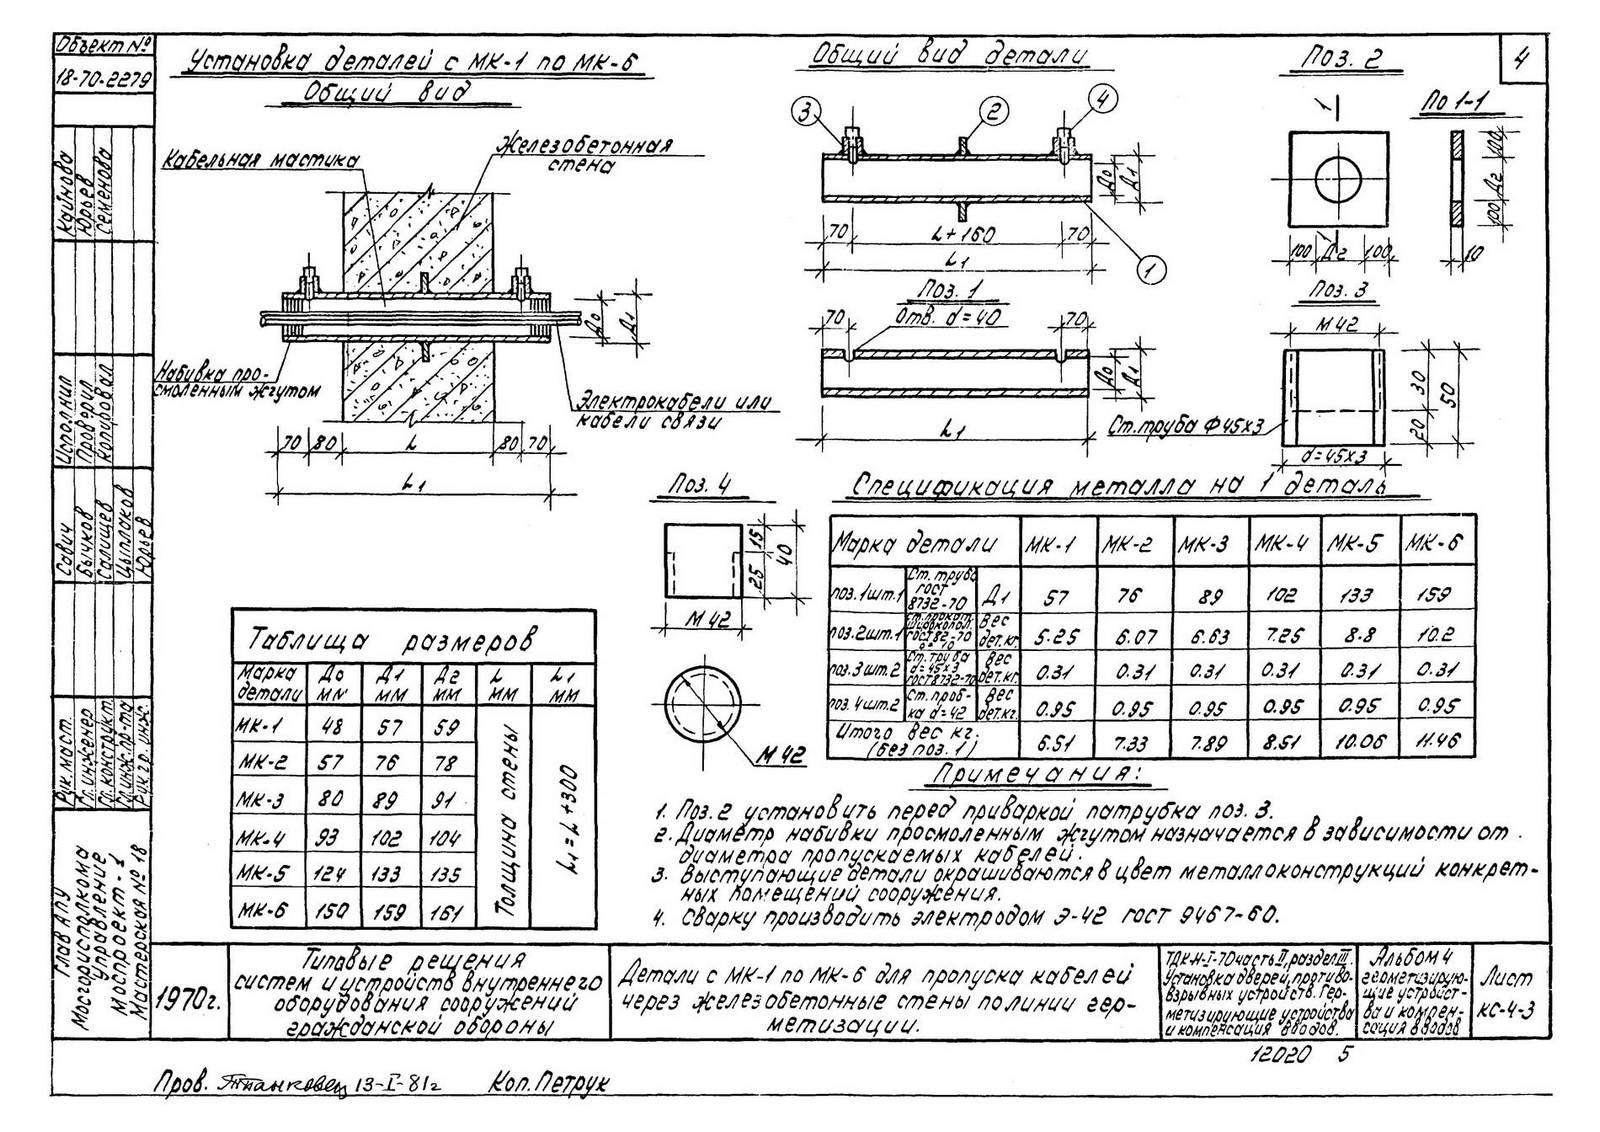 Объект №
18-70-2279
4
Установка деталей с МК-1 по МК-6
Общий вид
Кабельная мастика
Железобетонная
стена
Набивка про-
смоленным жгутом
Электрокабели или
кабели связи
70 80 L 80 70
L1
Д0 Д1
Общий вид детали
3 2 4
70 L+160 70
L1
1
Д0 Д1
Поз. 1
70 Отв. d=40 70
Д0 Д1
L1
Поз. 2
1
1
100 Д2 100
По 1-1
100 Д2 100
10
Поз. 3
М 42
30
20
50
Ст. труба Ф 45х3
d=45х3
Поз. 4
15
25
40
М 42
М 42
Таблица размеров
Марка детали Д0 мм Д1 мм Д2 мм L мм L1 мм
МК-1 48 57 59
МК-2 57 76 78
МК-3 80 89 91
МК-4 93 102 104
МК-5 124 133 135
МК-6 150 159 161
Толщина стены
L1 = L+300
Спецификация металла на 1 деталь
Марка детали МК-1 МК-2 МК-3 МК-4 МК-5 МК-6
поз.1шт.1 Ст. труба ГОСТ 8732-70 Д1 57 76 89 102 133 159
поз.2шт.1 ст. прокат. широкопол. гост 82-70 вес дет.кг. 5.25 6.07 6.63 7.25 8.8 10.2
поз.3шт.2 Ст. труба d=45х3 гост 8732-70 вес дет.кг. 0.31 0.31 0.31 0.31 0.31 0.31
поз.4шт.2 Ст. проб-ка d=42 вес дет.кг. 0.95 0.95 0.95 0.95 0.95 0.95
Итого вес кг. (без поз. 1) 6.51 7.33 7.89 8.51 10.06 11.46
Примечания:
1. Поз. 2 установить перед приваркой патрубка поз. 3.
2. Диаметр набивки просмоленным жгутом назначается в зависимости от
диаметра пропускаемых кабелей.
3. Выступающие детали окрашиваются в цвет металлоконструкций конкрет-
ных помещений сооружения.
4. Сварку производить электродом Э-42 гост 9467-60.
Кайнова
Юрьев
Семенова
Исполнил
Проверил
Копировал
Сович
Бычков
Салищев
Цыплаков
Юрьев
Рук. маст.
Гл. инженер
Гл. конструкт.
Гл. инж. пр-та
Рук. гр. инж.
Глав АПУ
Мосгорисполкома
управление
Моспроект-1
Мастерская № 18
1970г.
Типовые решения
систем и устройств внутреннего
оборудования сооружений
гражданской обороны
Детали с МК-1 по МК-6 для пропуска кабелей
через железобетонные стены по линии гер-
метизации.
ТДК-Н-I-70 часть II, раздел III.
Установка дверей, противо-
взрывных устройств. Гер-
метизирующие устройства
и компенсация вводов.
Альбом 4
герметизирую-
щие устройст-
ва и компен-
сация вводов
Лист
КС-4-3
12020 5
Пров. 13-I-81г Коп. Петрук